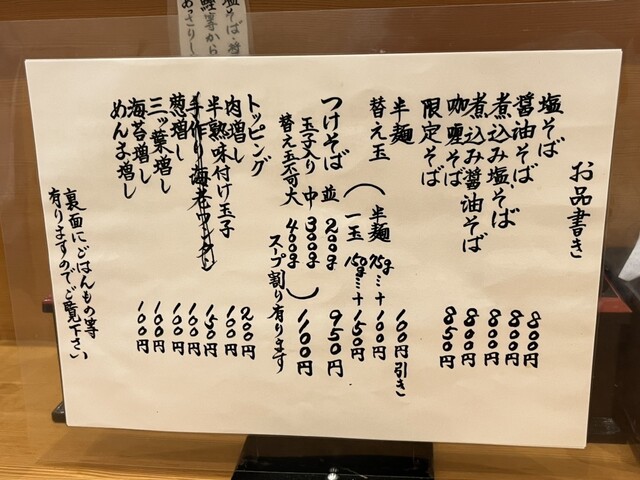 お品書き
塩そば 800円
醤油そば 800円
煮込み塩そば 800円
煮込み醤油そば 800円
咖喱そば 850円
限定そば
半麺 100円引き
替え玉（半麺 75g…+100円
一玉 150g…+150円
つけそば 並 200g 950円
玉子入り 中 300g 1100円
替え玉不可 大 400g
スープ割り有ります
トッピング
肉増し 200円
半熟味付け玉子 100円
手作り海老ワンタン 150円
葱増し 100円
三ッ葉増し 100円
海苔増し 100円
めんま増し 100円
裏面にごはんもの等
有りますのでご覧下さい
塩そば・
あっさりし